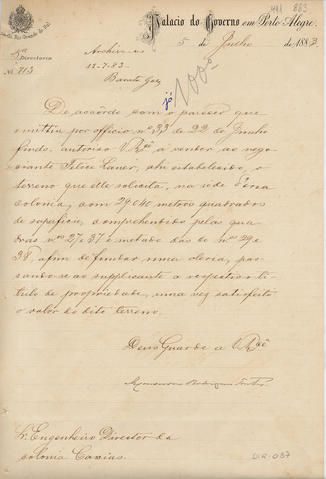 Palacio do Governo em Porto Alegre,
5 de Julho de 1883
Directoria
Nº 713
Archive-se
12-7-83
De accôrdo com o parecer que
emittiu por officio nº 33 de 22 de Junho
findo, autoriso V. Rcê a vender ao nego-
ciante Felice Laner, ahi estabelecido, o
terreno que elle solicita, na séde d'essa
colonia, com 29.040 metros quadrados
de superficie, e comprehendido pelas qua-
dras nos 27 e 37 e metade das de nos 29 e
38, afim de fundar uma olaria, pas-
sando-se ao supplicante o respectivo ti-
tulo de propriedade, uma vez satisfeito
o valor do dito terreno.
Deus Guarde a V. Rcê
Sr. Engenheiro Director da
colonia Caxias.